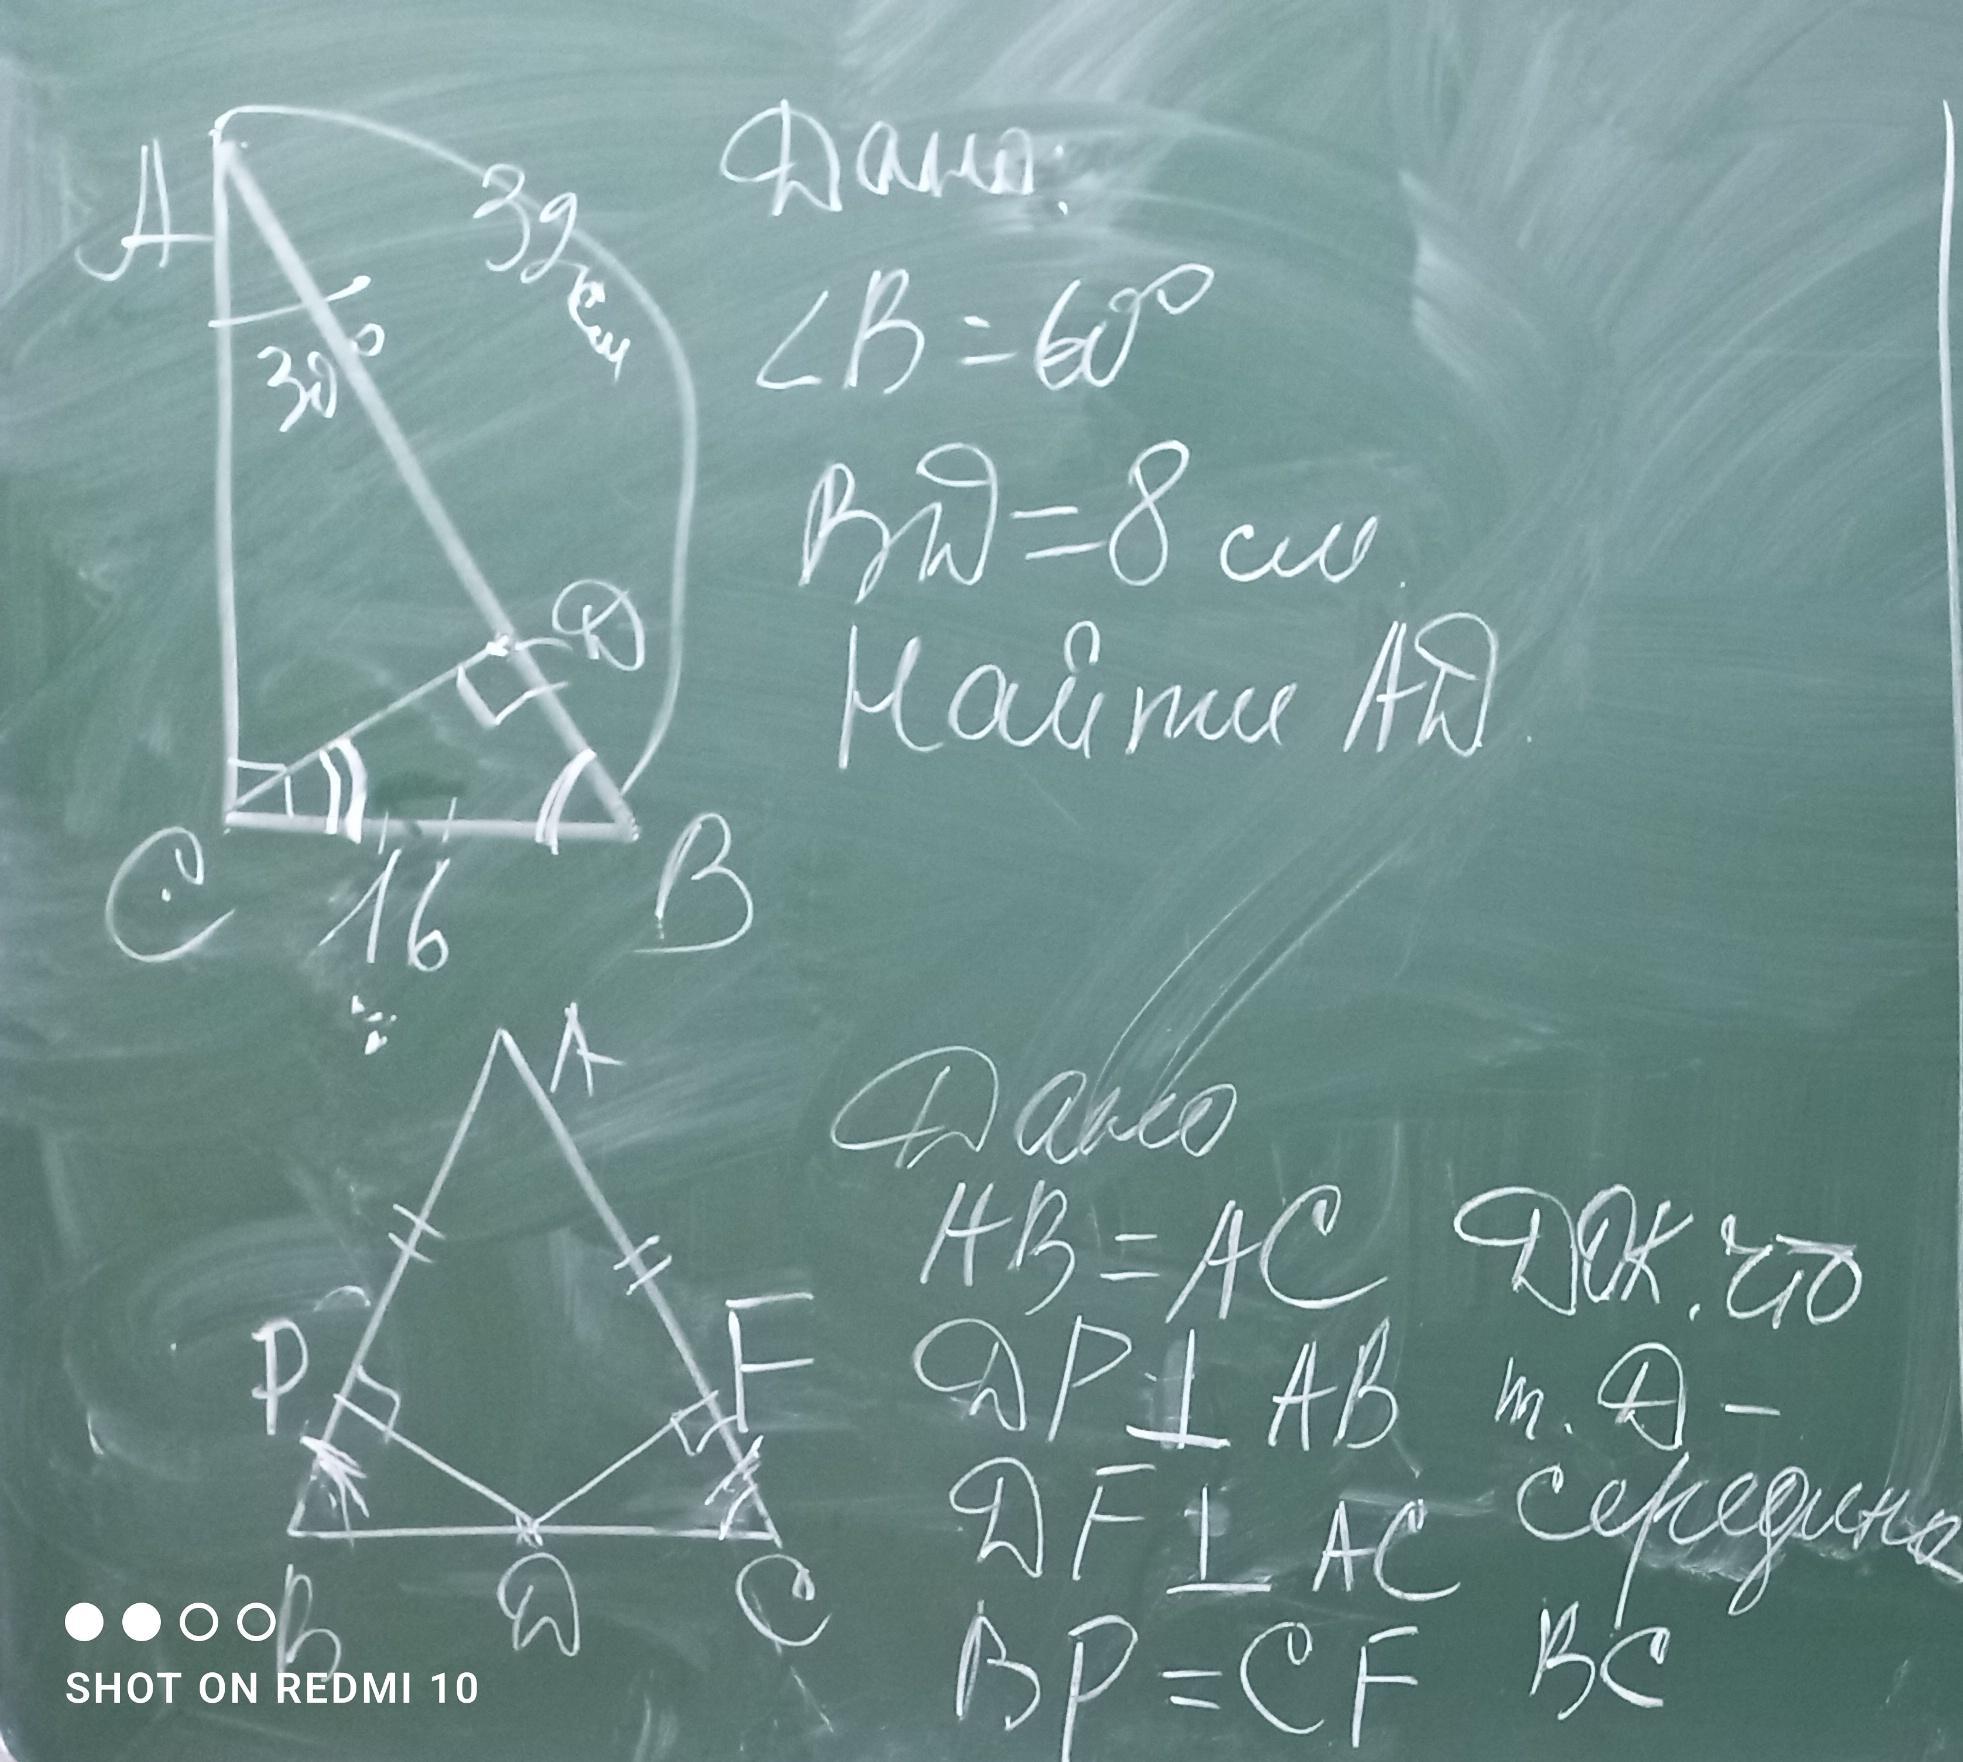 A
32 см
30°
D
C
16
B
Дано:
∠B = 60°
BD = 8 см.
Найти AD.
A
P
F
B
D
C
Дано
AB = AC
DP ⊥ AB
DF ⊥ AC
BP = CF
Док. что
т. D –
середина
BC
SHOT ON REDMI 10